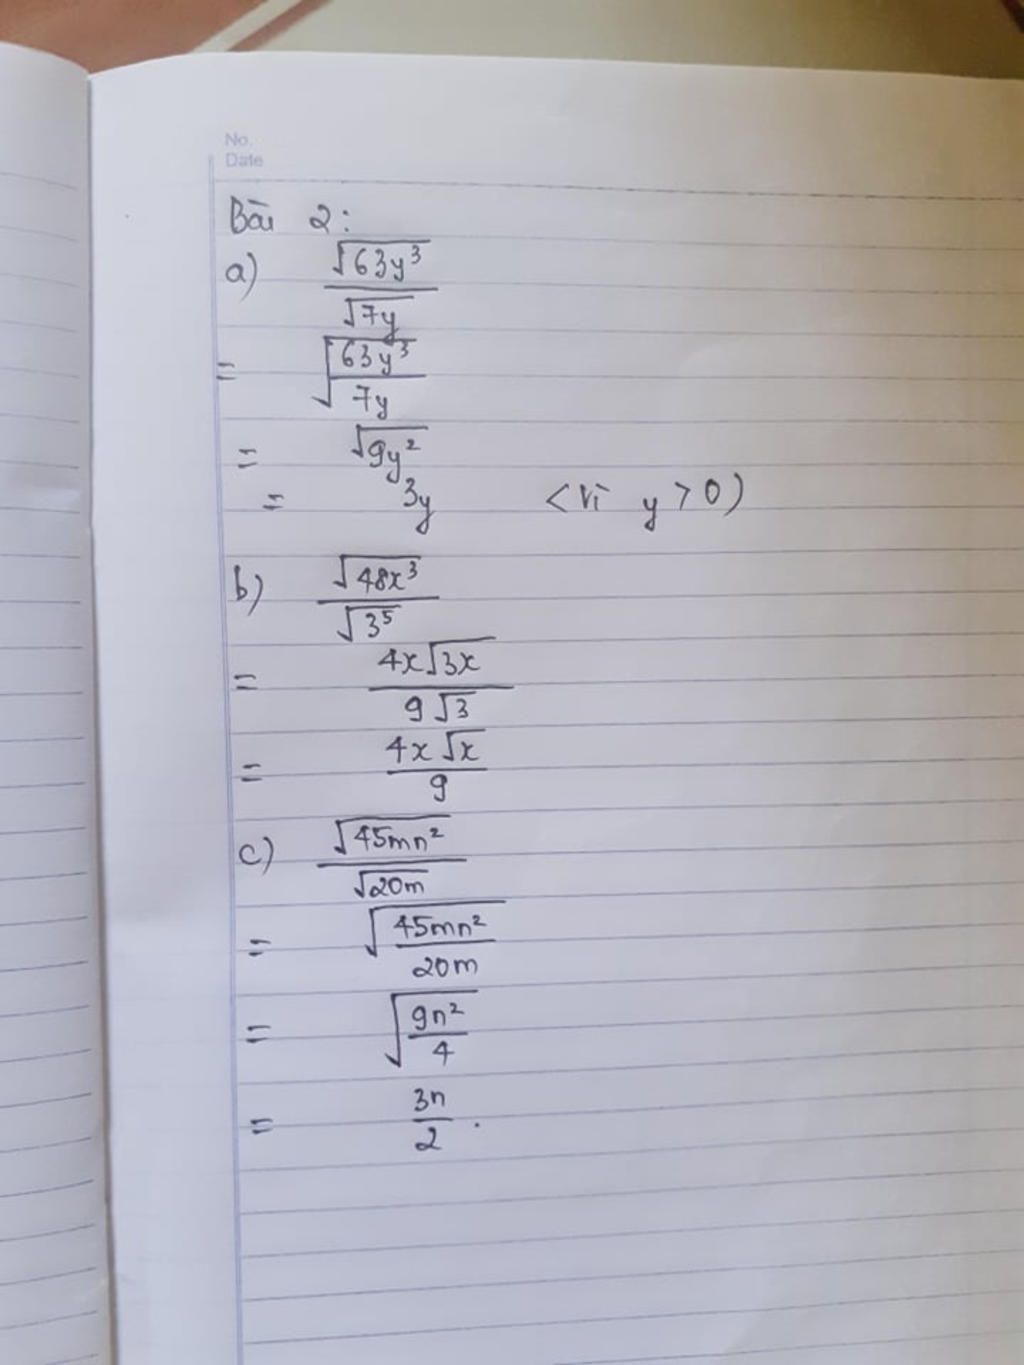 No.
Date
Bài 2:
a) √63y³ / √7y
= √(63y³ / 7y)
= √9y²
= 3y <vì y > 0)
b) √48x³ / √3⁵
= 4x√3x / 9√3
= 4x√x / 9
c) √45mn² / √20m
= √(45mn² / 20m)
= √(9n² / 4)
= 3n / 2 .